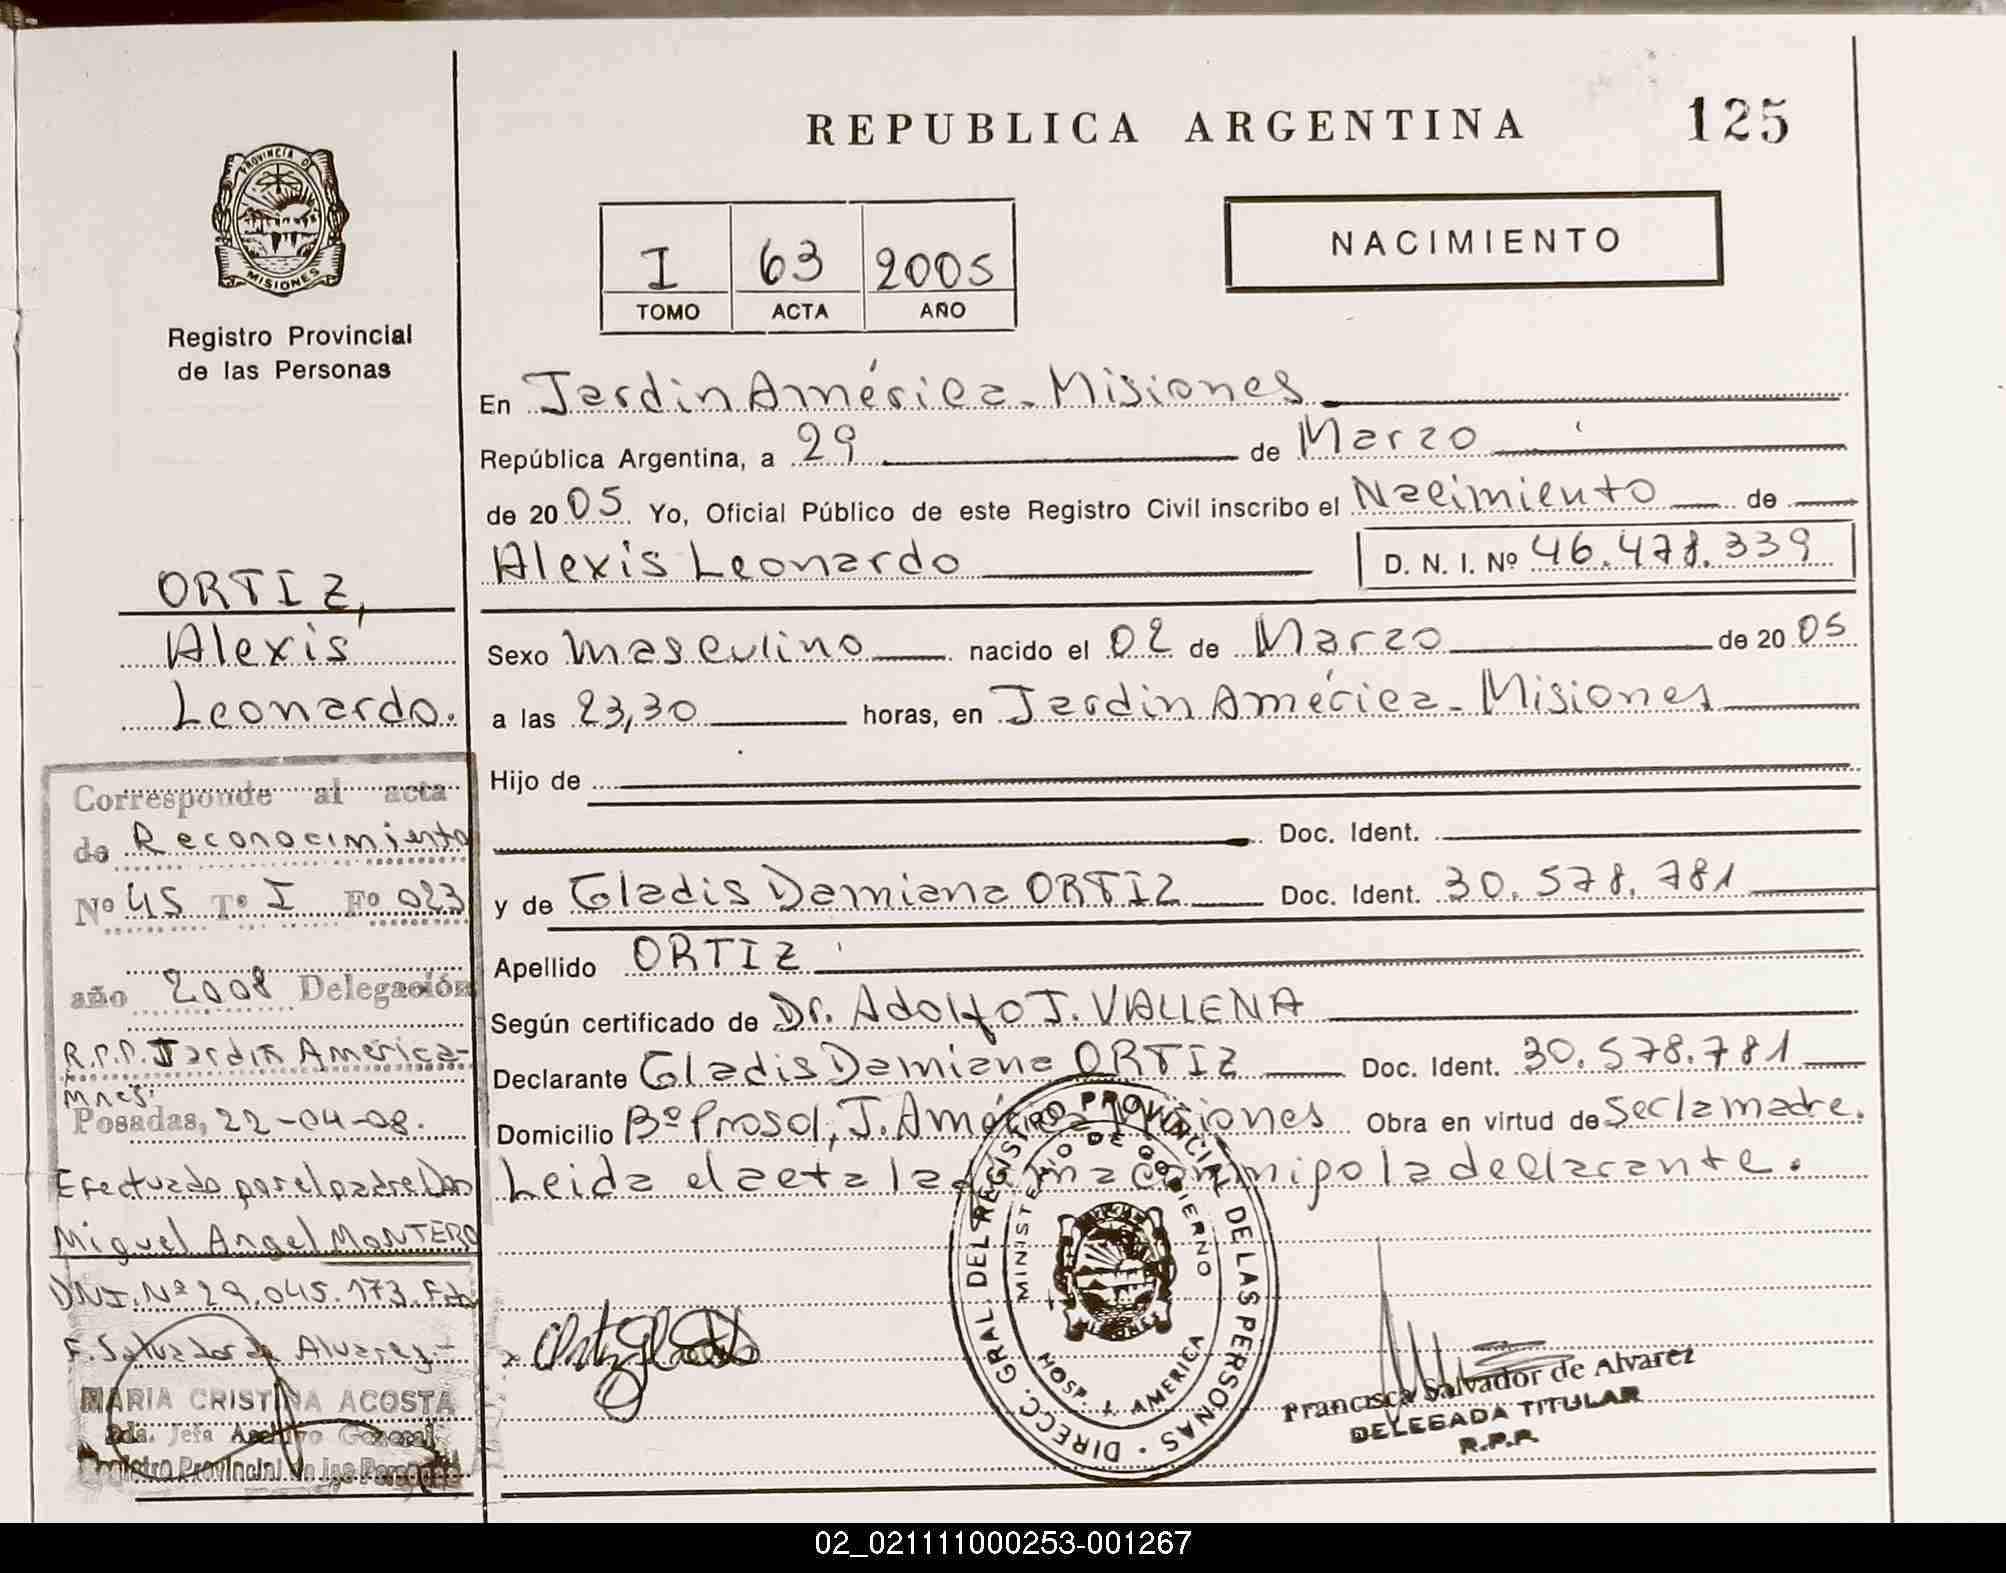 REPUBLICA ARGENTINA
125
PROVINCIA D
MISIONES
Registro Provincial
de las Personas
I 63 2005
TOMO ACTA AÑO
NACIMIENTO
En Jardin América - Misiones
República Argentina, a 29 de Marzo
de 2005 Yo, Oficial Público de este Registro Civil inscribo el Nacimiento de
Alexis Leonardo D. N. I. Nº 46.478.339
Sexo masculino nacido el 02 de Marzo de 2005
a las 23,30 horas, en Jardin América - Misiones
Hijo de
Doc. Ident.
y de Gladis Damiana ORTIZ Doc. Ident. 30.578.781
Apellido ORTIZ
Según certificado de Dr. Adolfo J. VALLENA
Declarante Gladis Damiana ORTIZ Doc. Ident. 30.578.781
Domicilio Bº Prosol, J. América Misiones Obra en virtud de Ser la madre.
Leida el acta la firma conmigo la declarante.
ORTIZ,
Alexis
Leonardo.
Corresponde al acta
de Reconocimiento
Nº 45 Tº I Fº 023
año 2008 Delegación
R.P.P. Jardin América-
Mnes.
Posadas, 22-04-08.
Efectuado por el padre Don
Miguel Angel MONTERO
DNI. Nº 29.045.173. Fdo
F. Salvador de Alvarez.-
MARIA CRISTINA ACOSTA
2da. Jefa Archivo General
Registro Provincial de las Personas
DIRECC. GRAL. DEL REGISTRO PROVINCIAL DE LAS PERSONAS
MINISTERIO DE GOBIERNO
MISIONES
HOSP. J. AMERICA
Francisca Salvador de Alvarez
DELEGADA TITULAR
R.P.P.
02_021111000253-001267